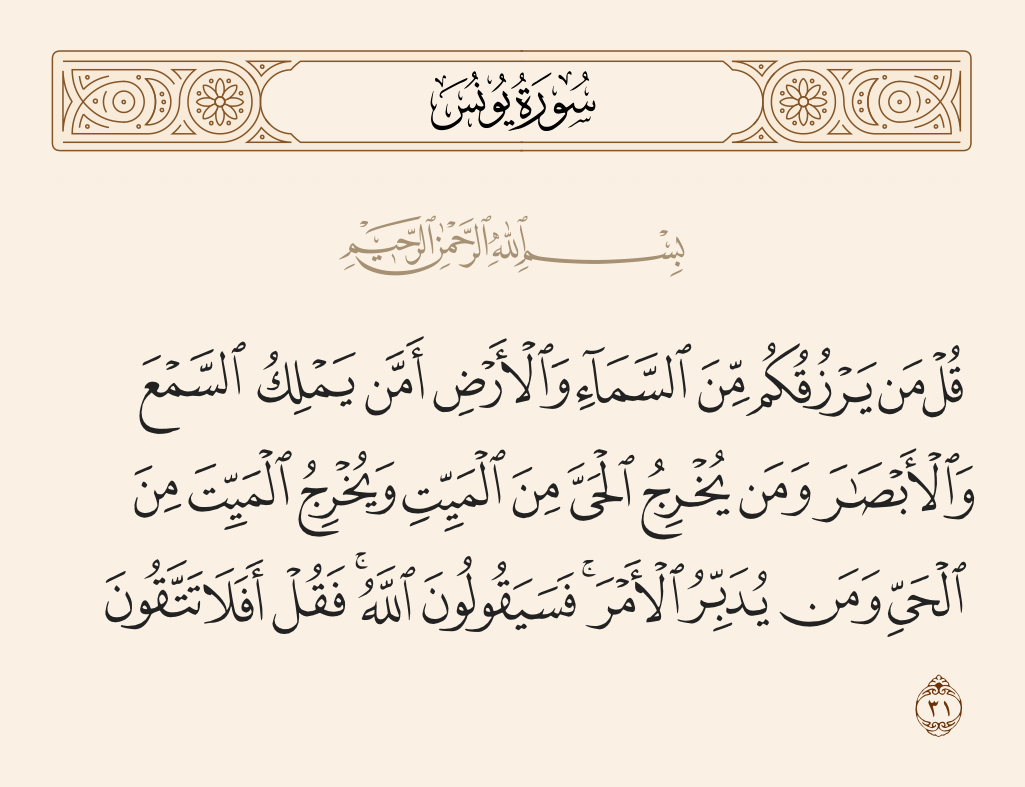 سُورَةُ يُونُسَ
بِسْمِ ٱللَّهِ ٱلرَّحْمَٰنِ ٱلرَّحِيمِ
قُلْ مَن يَرْزُقُكُم مِّنَ ٱلسَّمَآءِ وَٱلْأَرْضِ أَمَّن يَمْلِكُ ٱلسَّمْعَ
وَٱلْأَبْصَٰرَ وَمَن يُخْرِجُ ٱلْحَىَّ مِنَ ٱلْمَيِّتِ وَيُخْرِجُ ٱلْمَيِّتَ مِنَ
ٱلْحَىِّ وَمَن يُدَبِّرُ ٱلْأَمْرَ ۚ فَسَيَقُولُونَ ٱللَّهُ ۚ فَقُلْ أَفَلَا تَتَّقُونَ
٣١